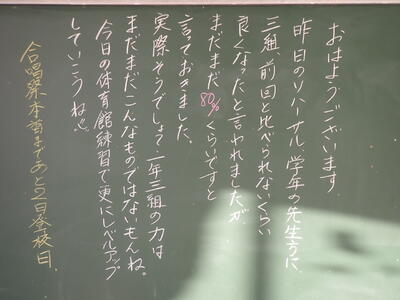 おはようございます。
昨日のリハーサル、学年の先生方に、
三組、前回と比べられないくらい
良くなったと言われましたが
まだまだ80%くらいですと
言っておきました。
実際そうでしょ?一年三組の力は
まだまだこんなものではないもんね。
今日の体育館練習で更にレベルアップ
していこうね。
合唱祭本番まであと2日登校日。